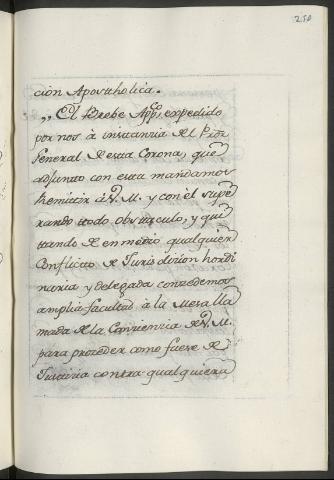 250
cion Apostholica.
„ El Brebe App.co expedido
por nos à instancia del Prõr
General de esta Corona, que
adjunto con esta mandamos
Remitir á V. M. y con él supe
rando todo obstaculo, y qui
ttando de enmedio qualquier
Conflicto de Jurisdicion hordi
naria y delegada concedemos
amplia facultad à la Mesa lla
mada de la Conciencia de V. M.
para proceder como fuese de
Justicia contra qualquiera